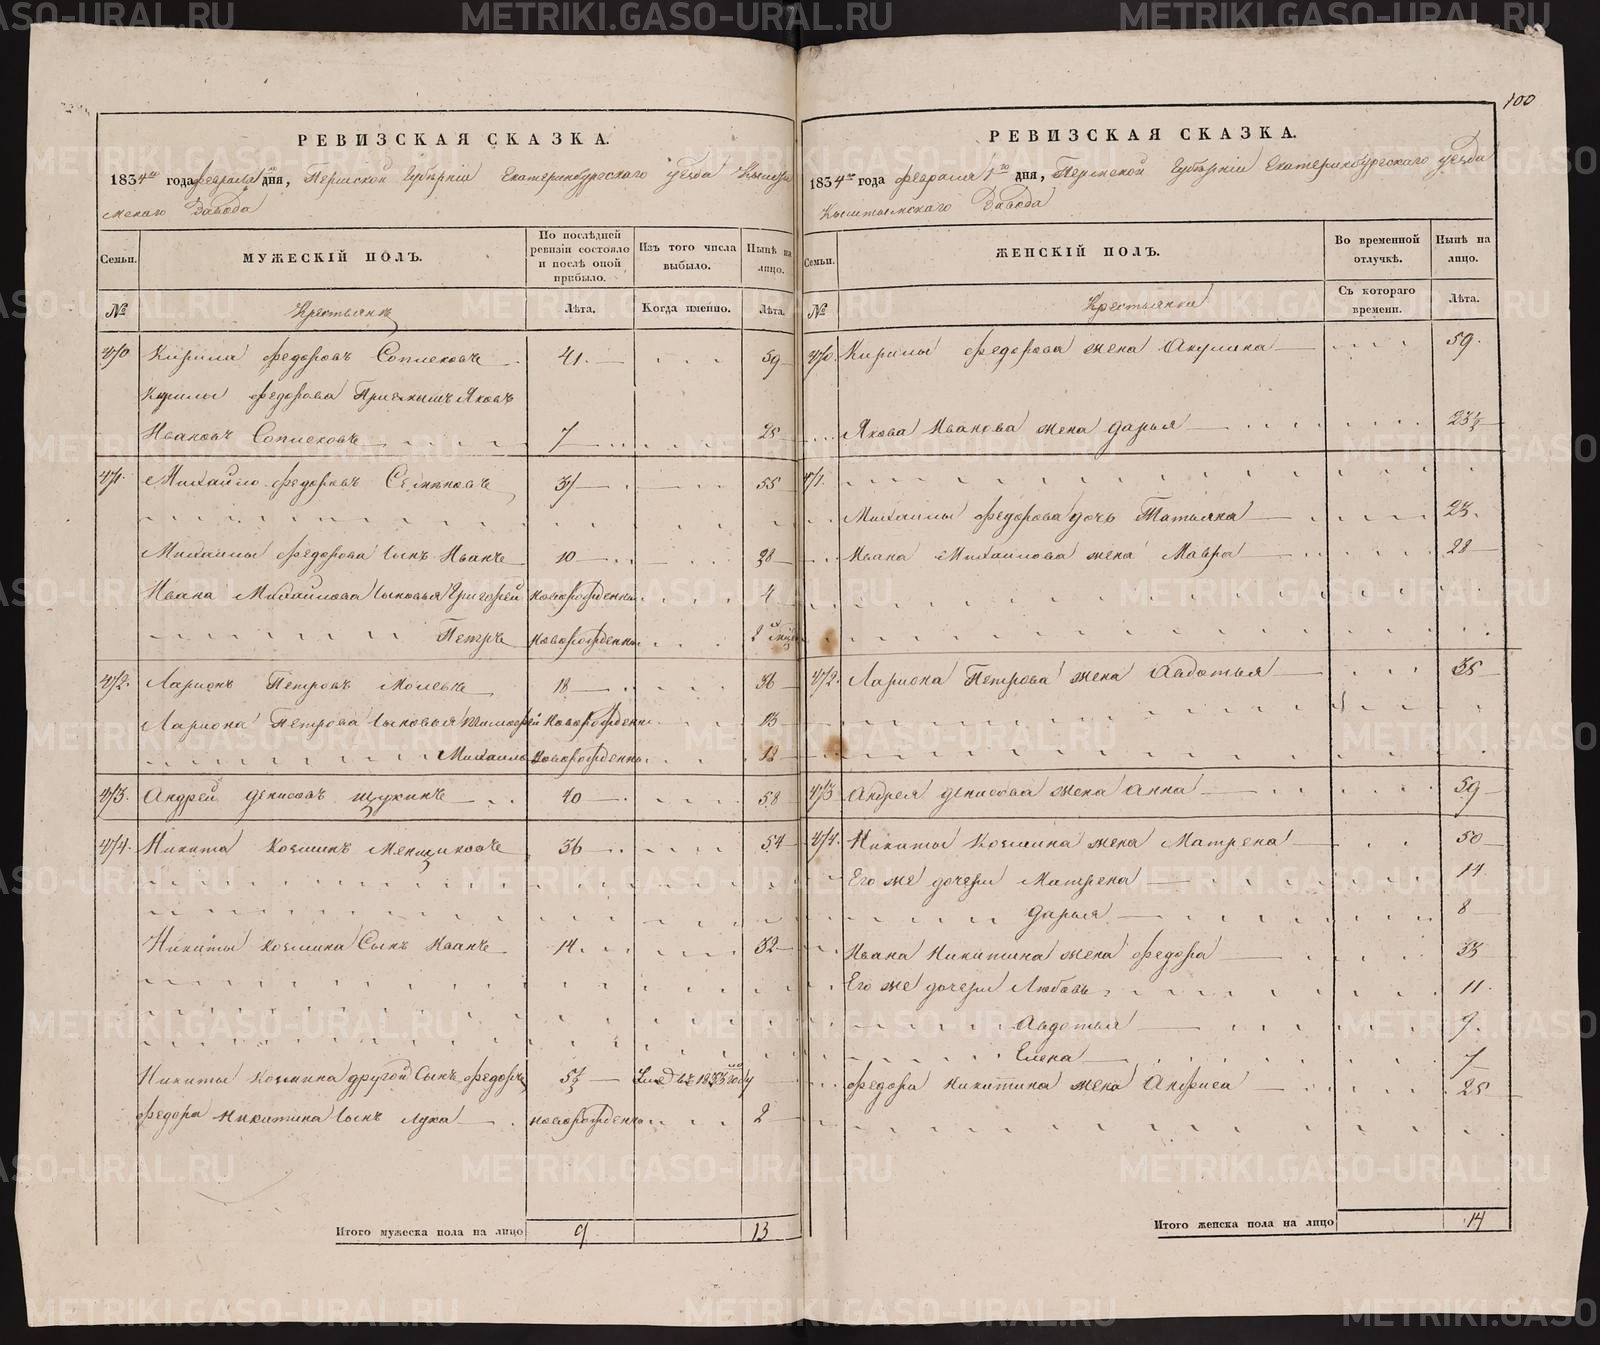 100
РЕВИЗСКАЯ СКАЗКА.
1834го года февраля дня, Пермской Губернии Екатеринбургского уезда Кышты
мскаго Завода
Семьи.
МУЖЕСКІЙ ПОЛЪ.
По послѣдней ревизіи состояло и послѣ оной прибыло.
Изъ того числа выбыло.
Нынѣ на лицо.
№
Крестьянъ
Лѣта.
Когда именно.
Лѣта.
470 Кирила Федоровъ 41. 59
Кирилы Федорова Приемышъ Яковъ
Ивановъ 7 25
471. Михайло Федоровъ 37 55
Михайлы Федорова сынъ Иванъ 10 28
Ивана Михайлова сыновья Григорей новорожденны 4
Петръ новорожденны 2
472. Ларионъ Петровъ 18 36
Лариона Петрова сыновья Тимофей новорожденн 13
Михаилъ новорожденны 12
473. Андрей Денисовъ Щукинъ 40 58
474. Никита Козминъ Меншиковъ 36 54
Никиты Козмина Сынъ Иванъ 14 32
Никиты Козмина другой Сынъ Федоръ 5½ въ 1833 году
Федора Никитина сынъ Лука новорожденны 2
Итого мужеска пола на лицо 9 13
РЕВИЗСКАЯ СКАЗКА.
1834го года февраля 1го дня, Пермской Губернии Екатеринбургского уезда
Кыштымскаго Завода
Семьи.
ЖЕНСКІЙ ПОЛЪ.
Во временной отлучкѣ.
Нынѣ на лицо.
№
Крестьянки
Съ котораго времени.
Лѣта.
470. Кирилы Федорова жена Акулина 59.
Якова Иванова жена Дарья 23½
471.
Михайлы Федорова дочь Татьяна 23.
Ивана Михайлова жена Мавра 28
472. Лариона Петрова жена Авдотья 35
473 Андрея Денисова жена Анна 59
474. Никиты Козмина жена Матрена 50
Его же дочери Матрена 14
Дарья 8
Ивана Никитина жена Федора 33
Его же дочери Любовь 11.
Авдотья 9.
Елена 7
Федора Никитина жена Анфиса 25
Итого женска пола на лицо 14
METRIKI.GASO-URAL.RU